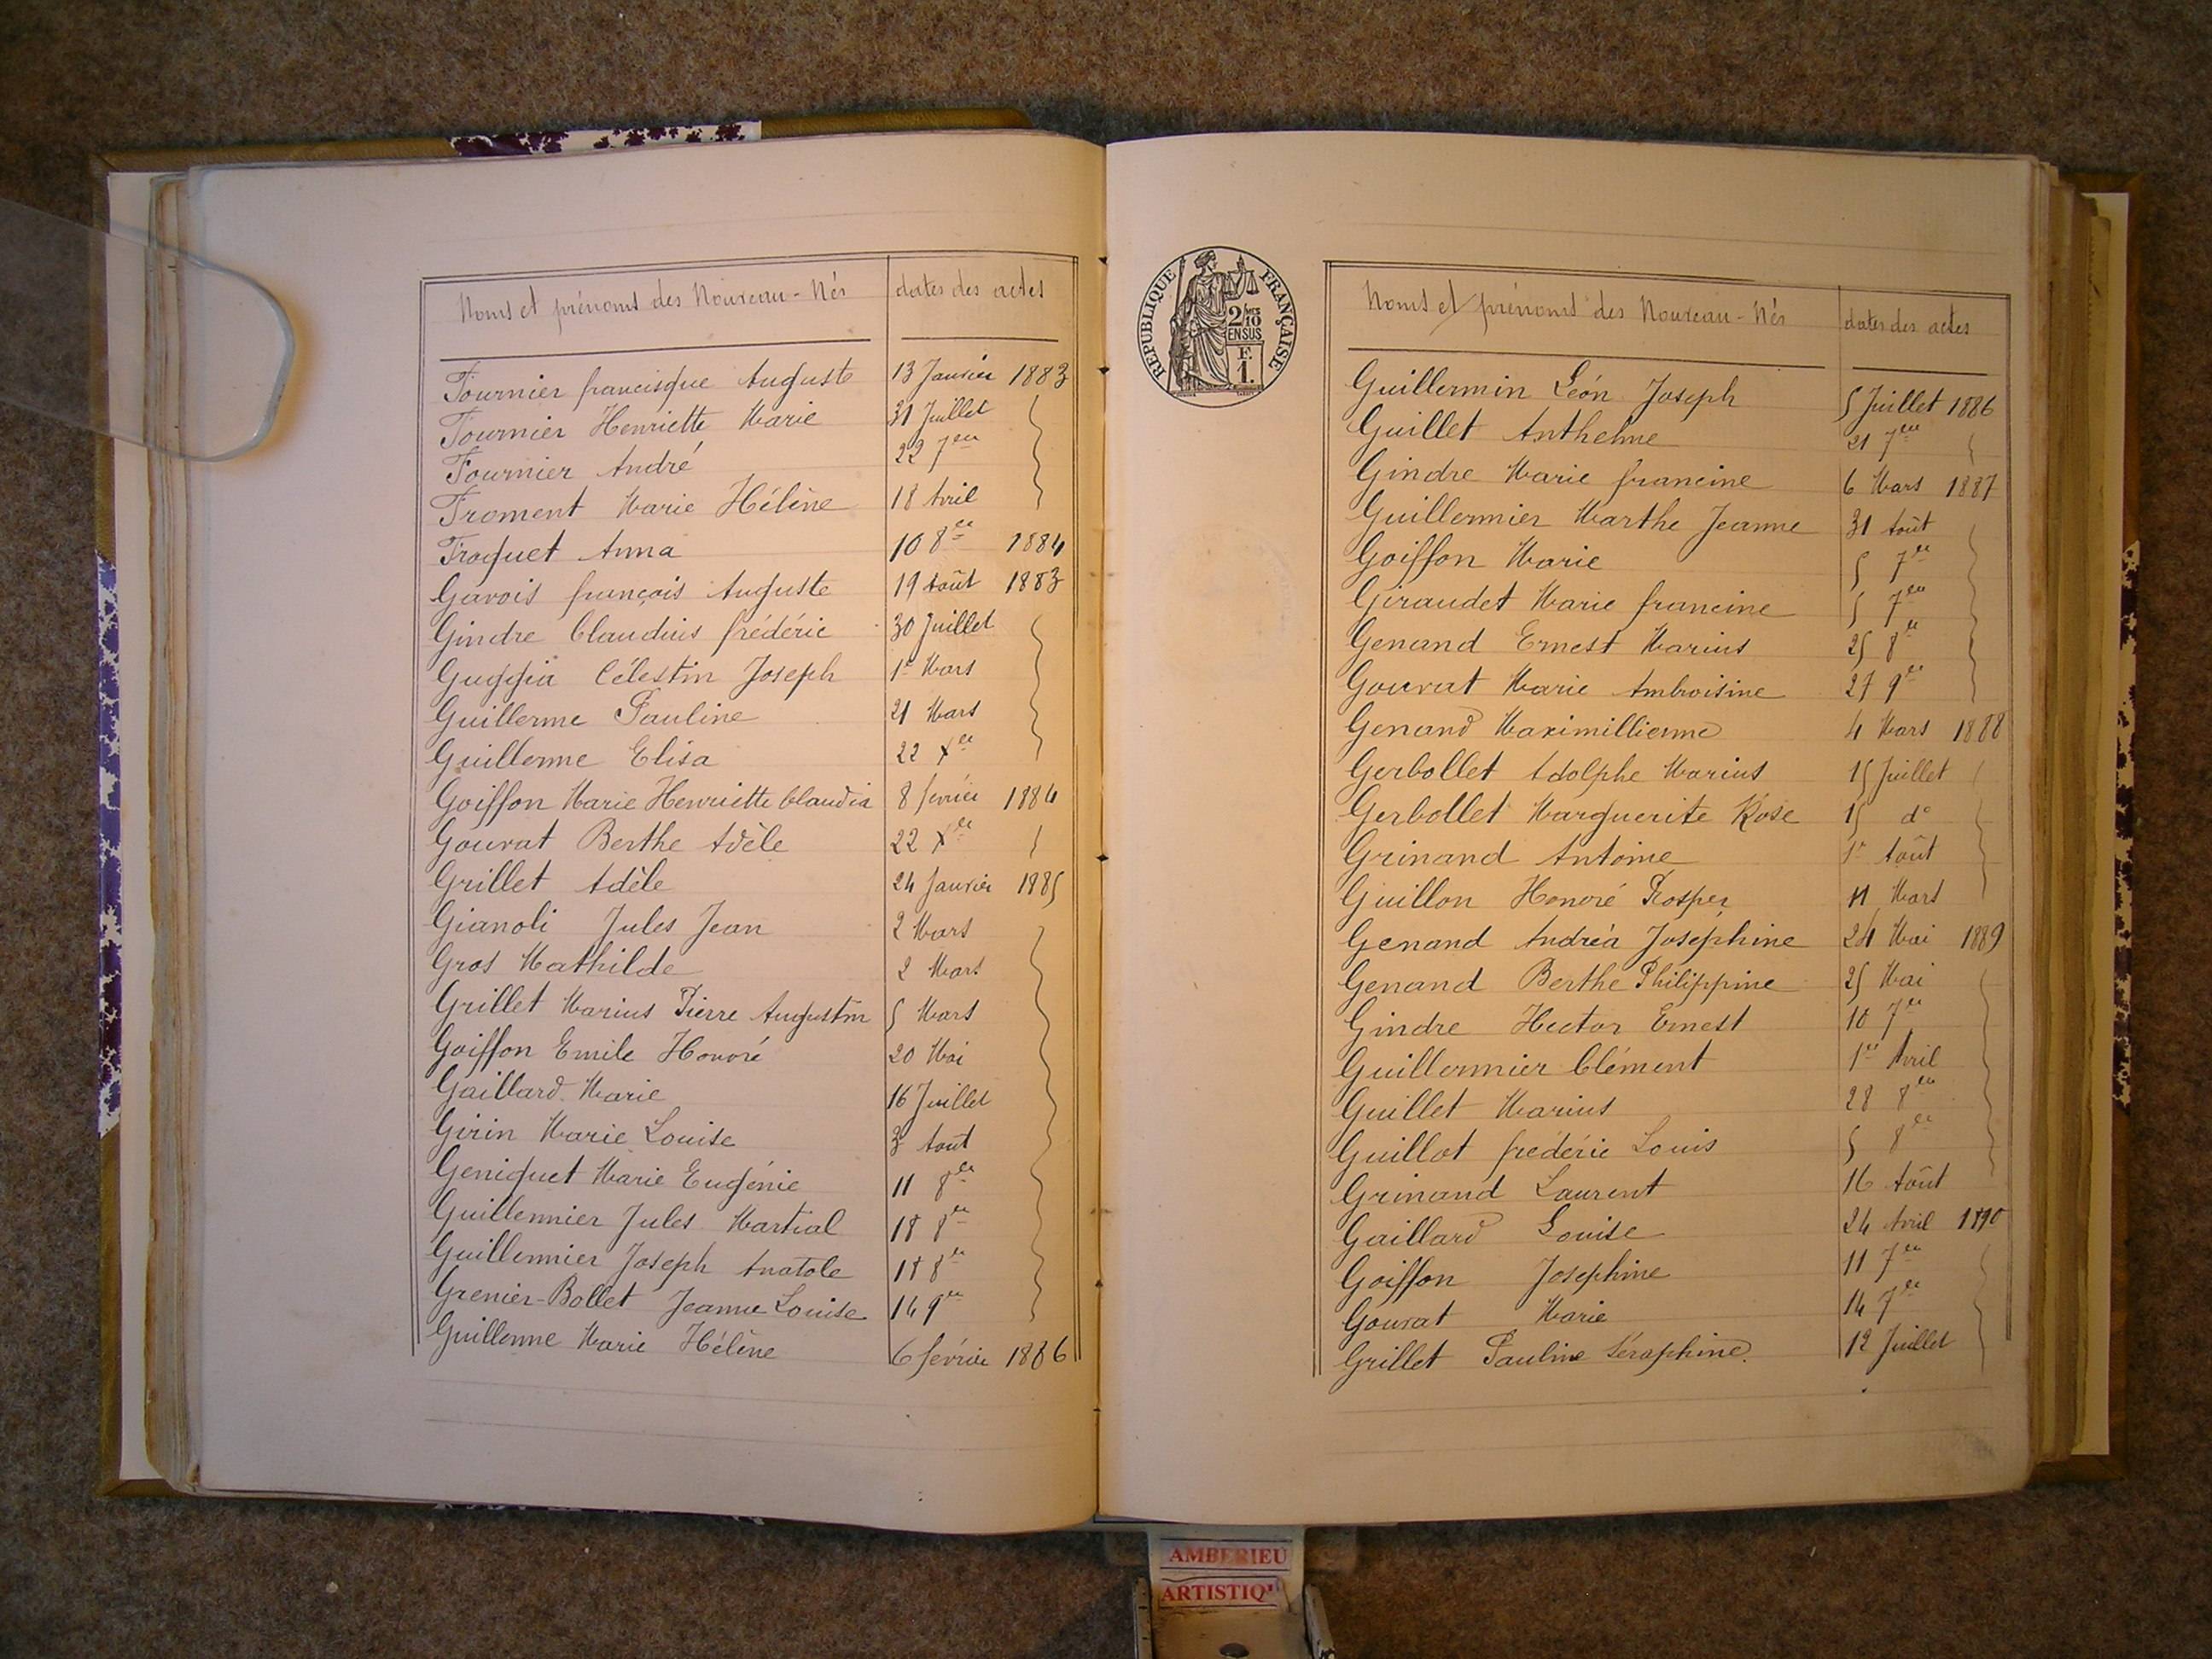 Noms et prénoms des Nouveau-Nés dates des actes
Fournier francisque Auguste 13 Janvier 1883
Fournier Henriette Marie 31 Juillet
Fournier André 22 7bre
Froment Marie Hélène 18 Avril
Froquet Anna 10 8bre 1884
Gavois françois Auguste 19 Août 1883
Gindre Claudius frédéric 30 Juillet
Guggia Célestin Joseph 1er Mars
Guillerme Pauline 21 Mars
Guillerme Elisa 22 Xbre
Goiffon Marie Henriette Claudia 8 février 1884
Gouvat Berthe Adèle 22 Xbre
Grillet Adèle 24 Janvier 1885
Gianoli Jules Jean 2 Mars
Gros Mathilde 2 Mars
Grillet Marius Pierre Augustin 5 Mars
Goiffon Emile Honoré 20 Mai
Gaillard Marie 16 Juillet
Girin Marie Louise 3 Août
Geniquet Marie Eugénie 11 8bre
Guillermier Jules Martial 18 8bre
Guillermier Joseph Anatole 18 8bre
Grenier-Bollet Jeanne Louise 14 9bre
Guillerme Marie Hélène 6 février 1886
REPUBLIQUE FRANÇAISE
2/10
EN SUS
F.
1.
Noms et prénoms des Nouveau-Nés dates des actes
Guillermin Léon Joseph 5 Juillet 1886
Guillet Anthelme 21 7bre
Gindre Marie francine 6 Mars 1887
Guillermier Marthe Jeanne 31 Août
Goiffon Marie 5 7bre
Giraudet Marie francine 5 7bre
Genand Ernest Marius 25 8bre
Gouvat Marie Ambroisine 27 9bre
Genand Maximillienne 4 Mars 1888
Gerbollet Adolphe Marius 15 Juillet
Gerbollet Marguerite Rose 15 do
Grinand Antoine 1er Août
Guillon Honoré Prosper 11 Mars
Genand Andréa Joséphine 24 Mai 1889
Genand Berthe Philippine 25 Mai
Gindre Hector Ernest 10 7bre
Guillermier Clément 1er Avril
Guillet Marius 28 8bre
Guillot frédéric Louis 5 8bre
Grinand Laurent 16 Août
Gaillard Louise 24 Avril 1890
Goiffon Josephine 11 7bre
Gouvat Marie 14 7bre
Grillet Pauline Séraphine. 12 Juillet
AMBERIEU
ARTISTIQ